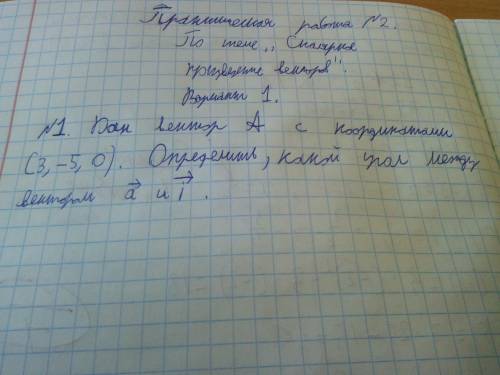 Практическая работа №2.
По теме „Скалярне
призведение векторов".
Вариант 1.
№1. Дан вектор А с координатами
(3, -5, 0). Определить, какой угол между
вектором a⃗ и i⃗.